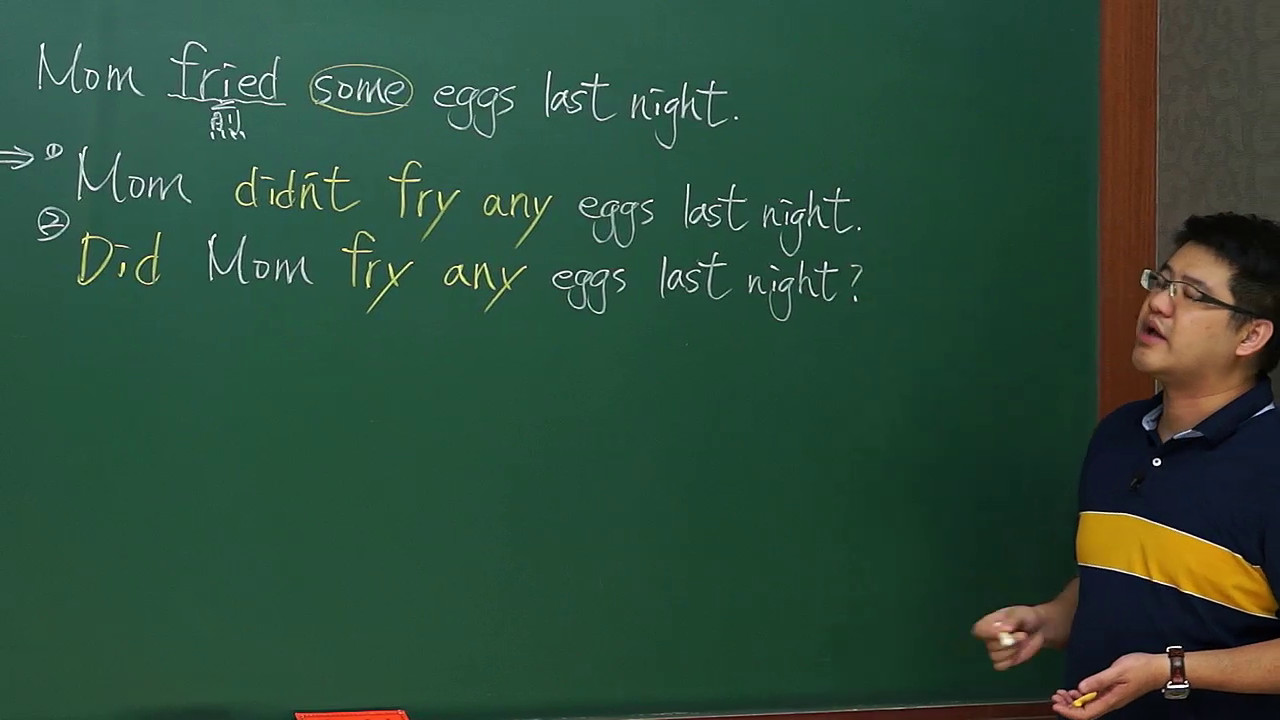 Mom fried some eggs last night.
⇒ ① Mom didn't fry any eggs last night.
② Did Mom fry any eggs last night?